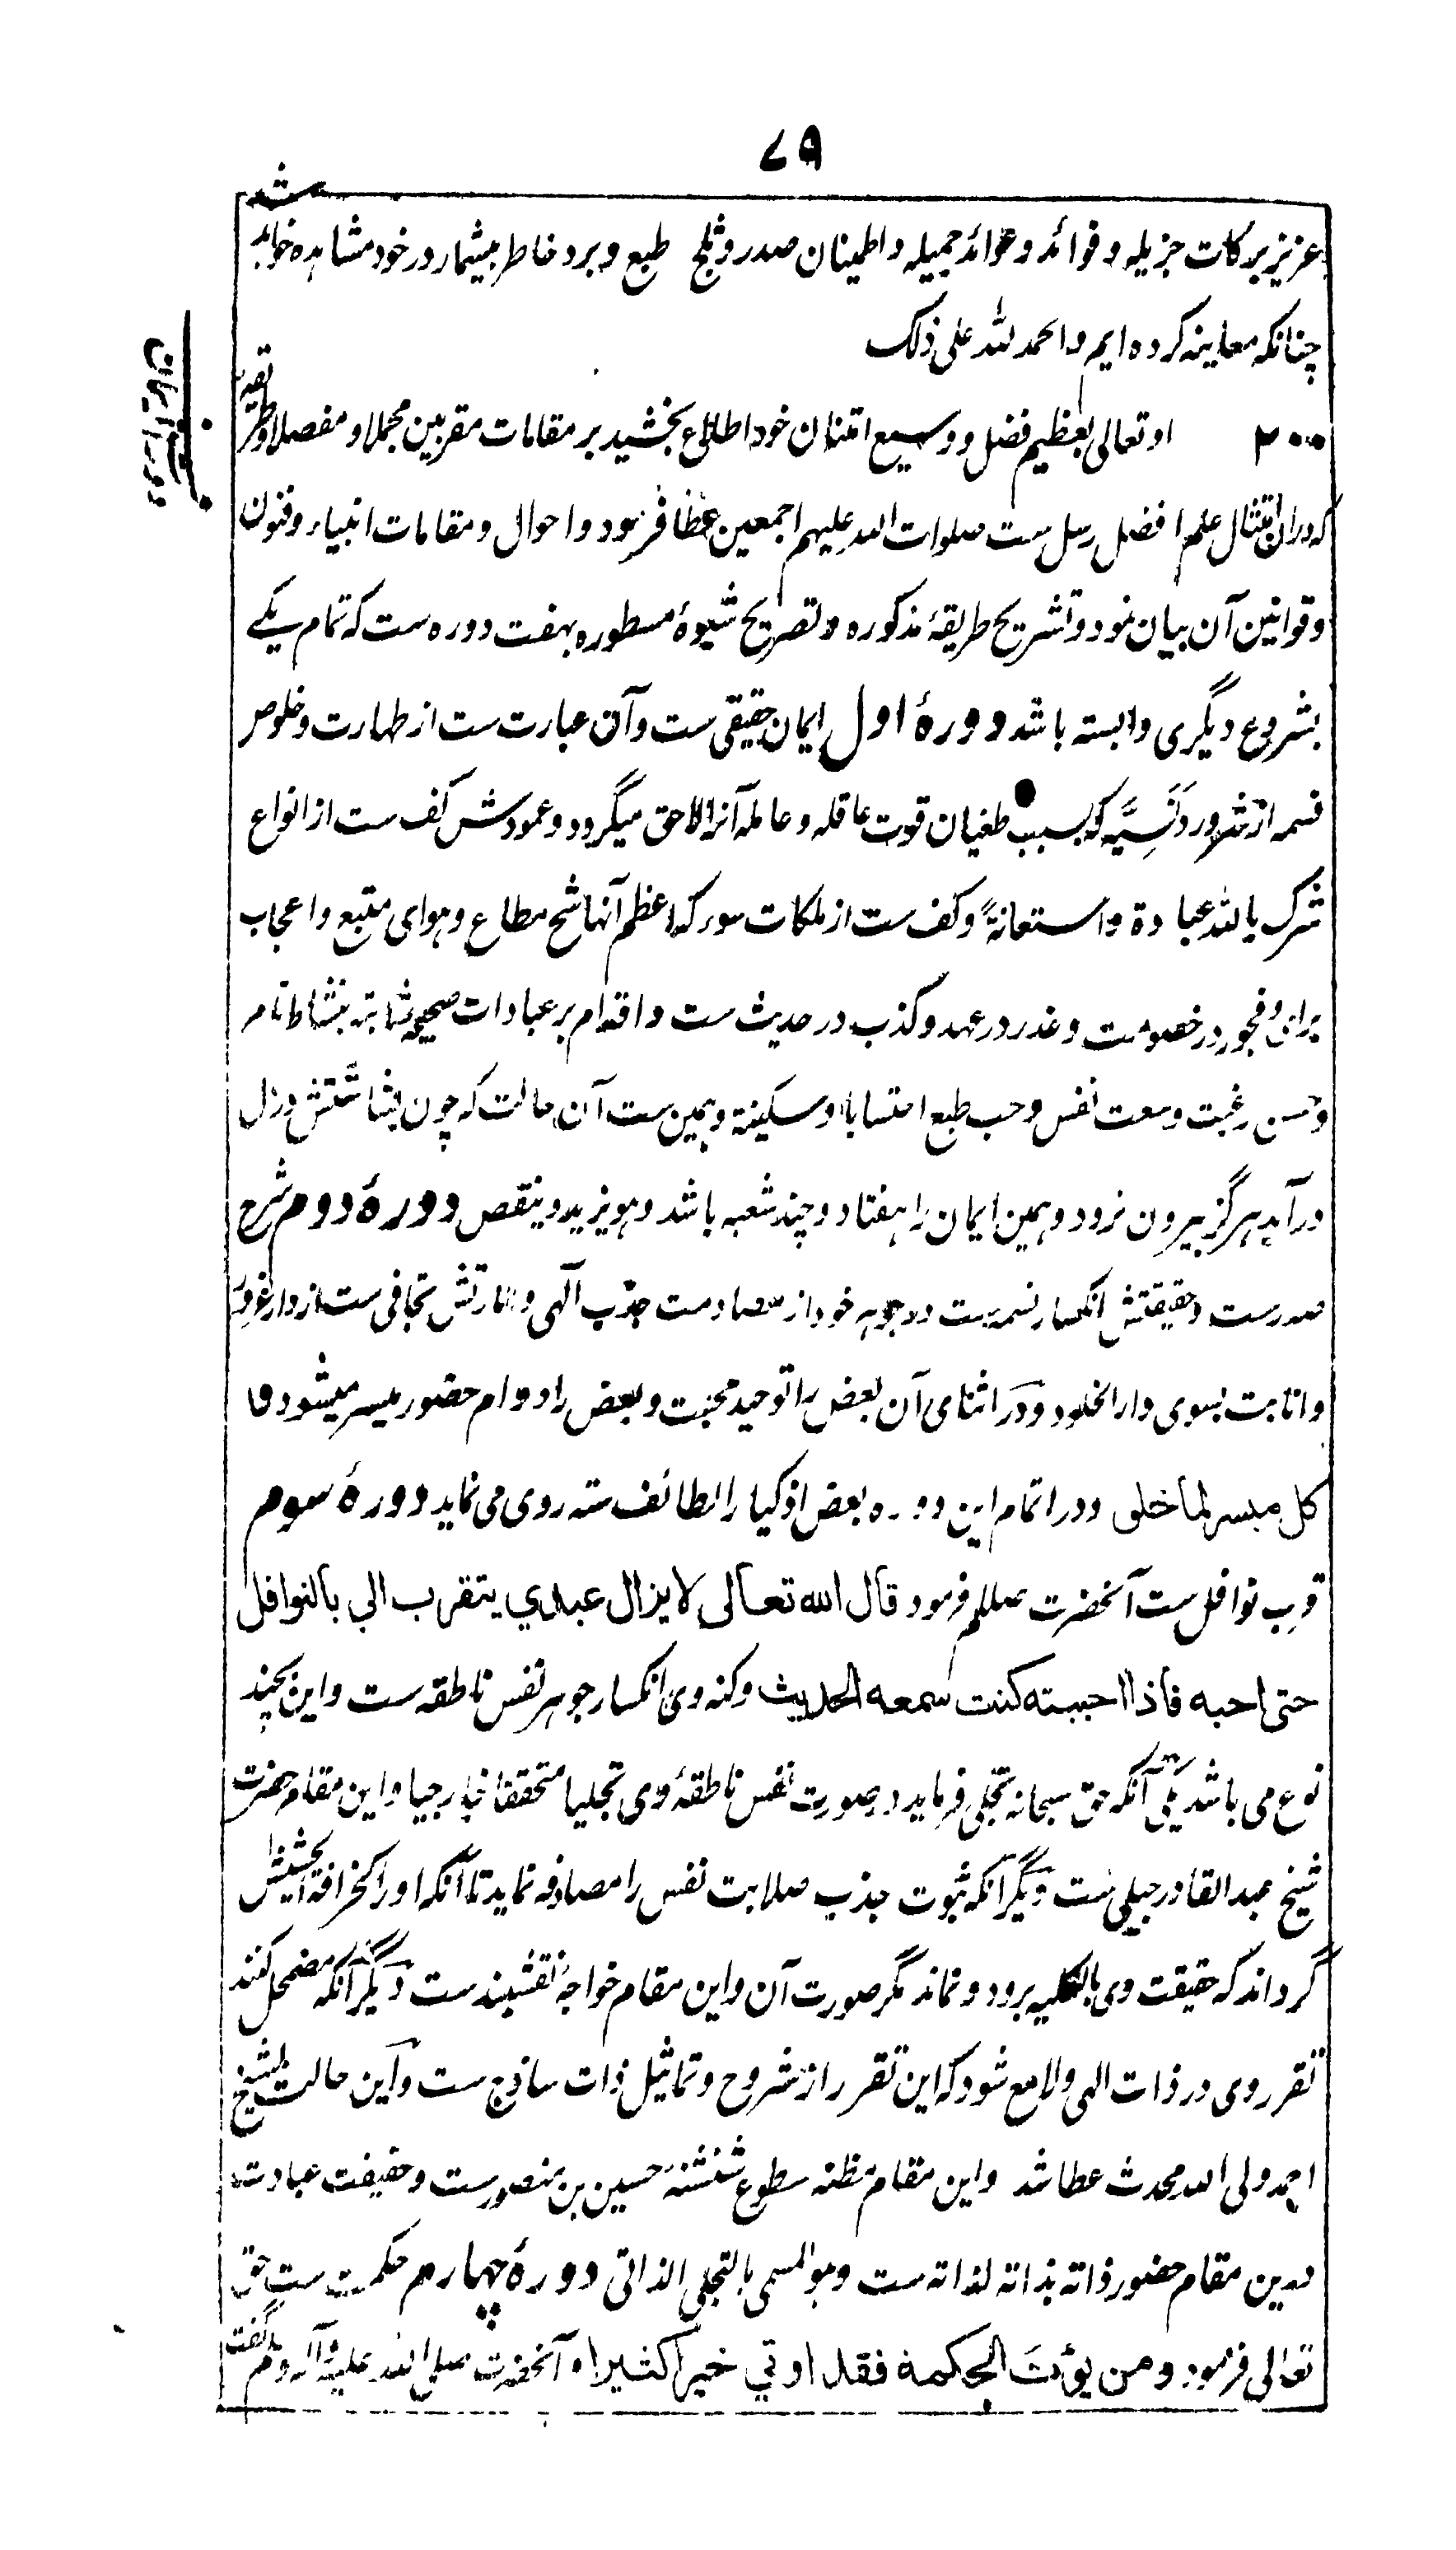 ۷۹
شد
عزیز برکات جزیله و فوائد و عوائد جمیله و اطمینان صدر و ثلج طبع و برد خاطر بیشمار در خود مشاهده خواهد
چنانکه معاینه کرده ایم و الحمد لله علی ذلک
۲۰۰ او تعالی بعظیم فضل و وسیع امتنان خود اطلاع بخشید بر مقامات مقربین مجملا و مفصلا و طریقیه
که دران امتثال علم افضل رسل ست صلوات الله علیهم اجمعین عطا فرمود و احوال و مقامات انبیاء و فنون
و قوانین آن بیان نمود و تشریح طریقهٔ مذکوره و تصریح شیوهٔ مسطوره بهفت دوره ست که تمام یکے
بشروع دیگری وابسته باشد دورهٔ اول ایمان حقیقی ست و آن عبارت ست از طهارت و خلوص
نسمه از شرور دَنَسِیَّه که بسبب طغیان قوت عاقله و عامله آنرا لاحق میگردد و عمودش کف ست از انواع
شرک بالله عبادة و استعانةً و کف ست از ملکات سوء که اعظم آنها شح مطاع و هوای متبع و اعجاب
برای و فجور در خصومت و غدر در عهد و کذب در حدیث ست و اقدام بر عبادات صحیحه ثابته بنشاط تام
و حسن رغبت و سعت نفس و حب طبع احتسابا و سکینة و همین ست آن حالت که چون بشاشتش در دل
درآید هرگز بیرون نرود و همین ایمان را هفتاد و چند شعبه باشد و هو یزید و ینقص دورهٔ دوم شرح
صدرست و حقیقتش انکسار نسمه ست در جوهر خود از مصادمت جذب آلهی و امارتش تجافی ست از دار غرور
و انابت بسوی دار الخلود و در اثنای آن بعض را توحید محبت و بعض را دوام حضور میسر میشود و
کل میسر لما خلق و در اتمام این دوره بعض اذکیا را لطائف سته روی می نماید دورهٔ سوم
قرب نوافل ست آنحضرت صلعم فرمود قال الله تعالی لا یزال عبدي یتقرب الي بالنوافل
حتی احبه فاذا احببته کنت سمعه الحدیث و کنه وی انکسار جوهر نفس ناطقه ست و این بچند
نوع می باشد یکی آنکه حق سبحانه تجلی فرماید در صورت نفس ناطقهٔ وی تجلیا متحققا خارجیا و این مقام حضرت
شیخ عبد القادر جیلی ست دیگر آنکه ثبوت جذب صلابت نفس را مصادفه نماید تا آنکه او را کخرافة الحشیش
گرداند که حقیقت وی بالکلیه برود و نماند مگر صورت آن و این مقام خواجهٔ نقشبند ست دیگر آنکه مضمحل کنند
تقرر وی در ذات الهی و لامع شود که این تقرر از شروح و تماثیل ذات ساذج ست و این حالت بشیخ
احمد ولی الله محدث عطا شد و این مقام مظنه سطوع شنشنهٔ حسین بن منصور ست و حقیقت عبادت
درین مقام حضور ذاته بذاته لذاته ست و هو المسمی بالتجلی الذاتی دورهٔ چهارم حکمت ست حق
تعالی فرمود و من یؤت الحکمة فقد اوتي خیرا کثیرا و آنحضرت صلی الله علیه و آله و سلم گفت